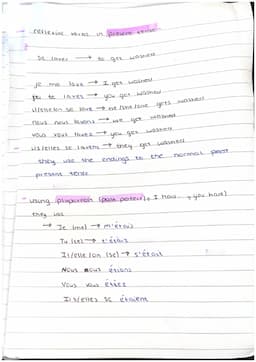 reflexive verbs in present tense
se laver → to get washed
je me lave → I get washed
tu te laves → you get washed
il/elle/on se lave → he/she/one gets washed
nous nous lavons → we get washed
vous vous lavez → you get washed
ils/elles se lavent → they get washed
they use the endings to the normal
present tense
using (past perfect) I have, you have)
they use
→ Je (me) → m'étais
Tu (te) → t'étais
Il/elle/on (se) → s'était
Nous nous étions
Vous vous étiez
Ils/elles se étaient